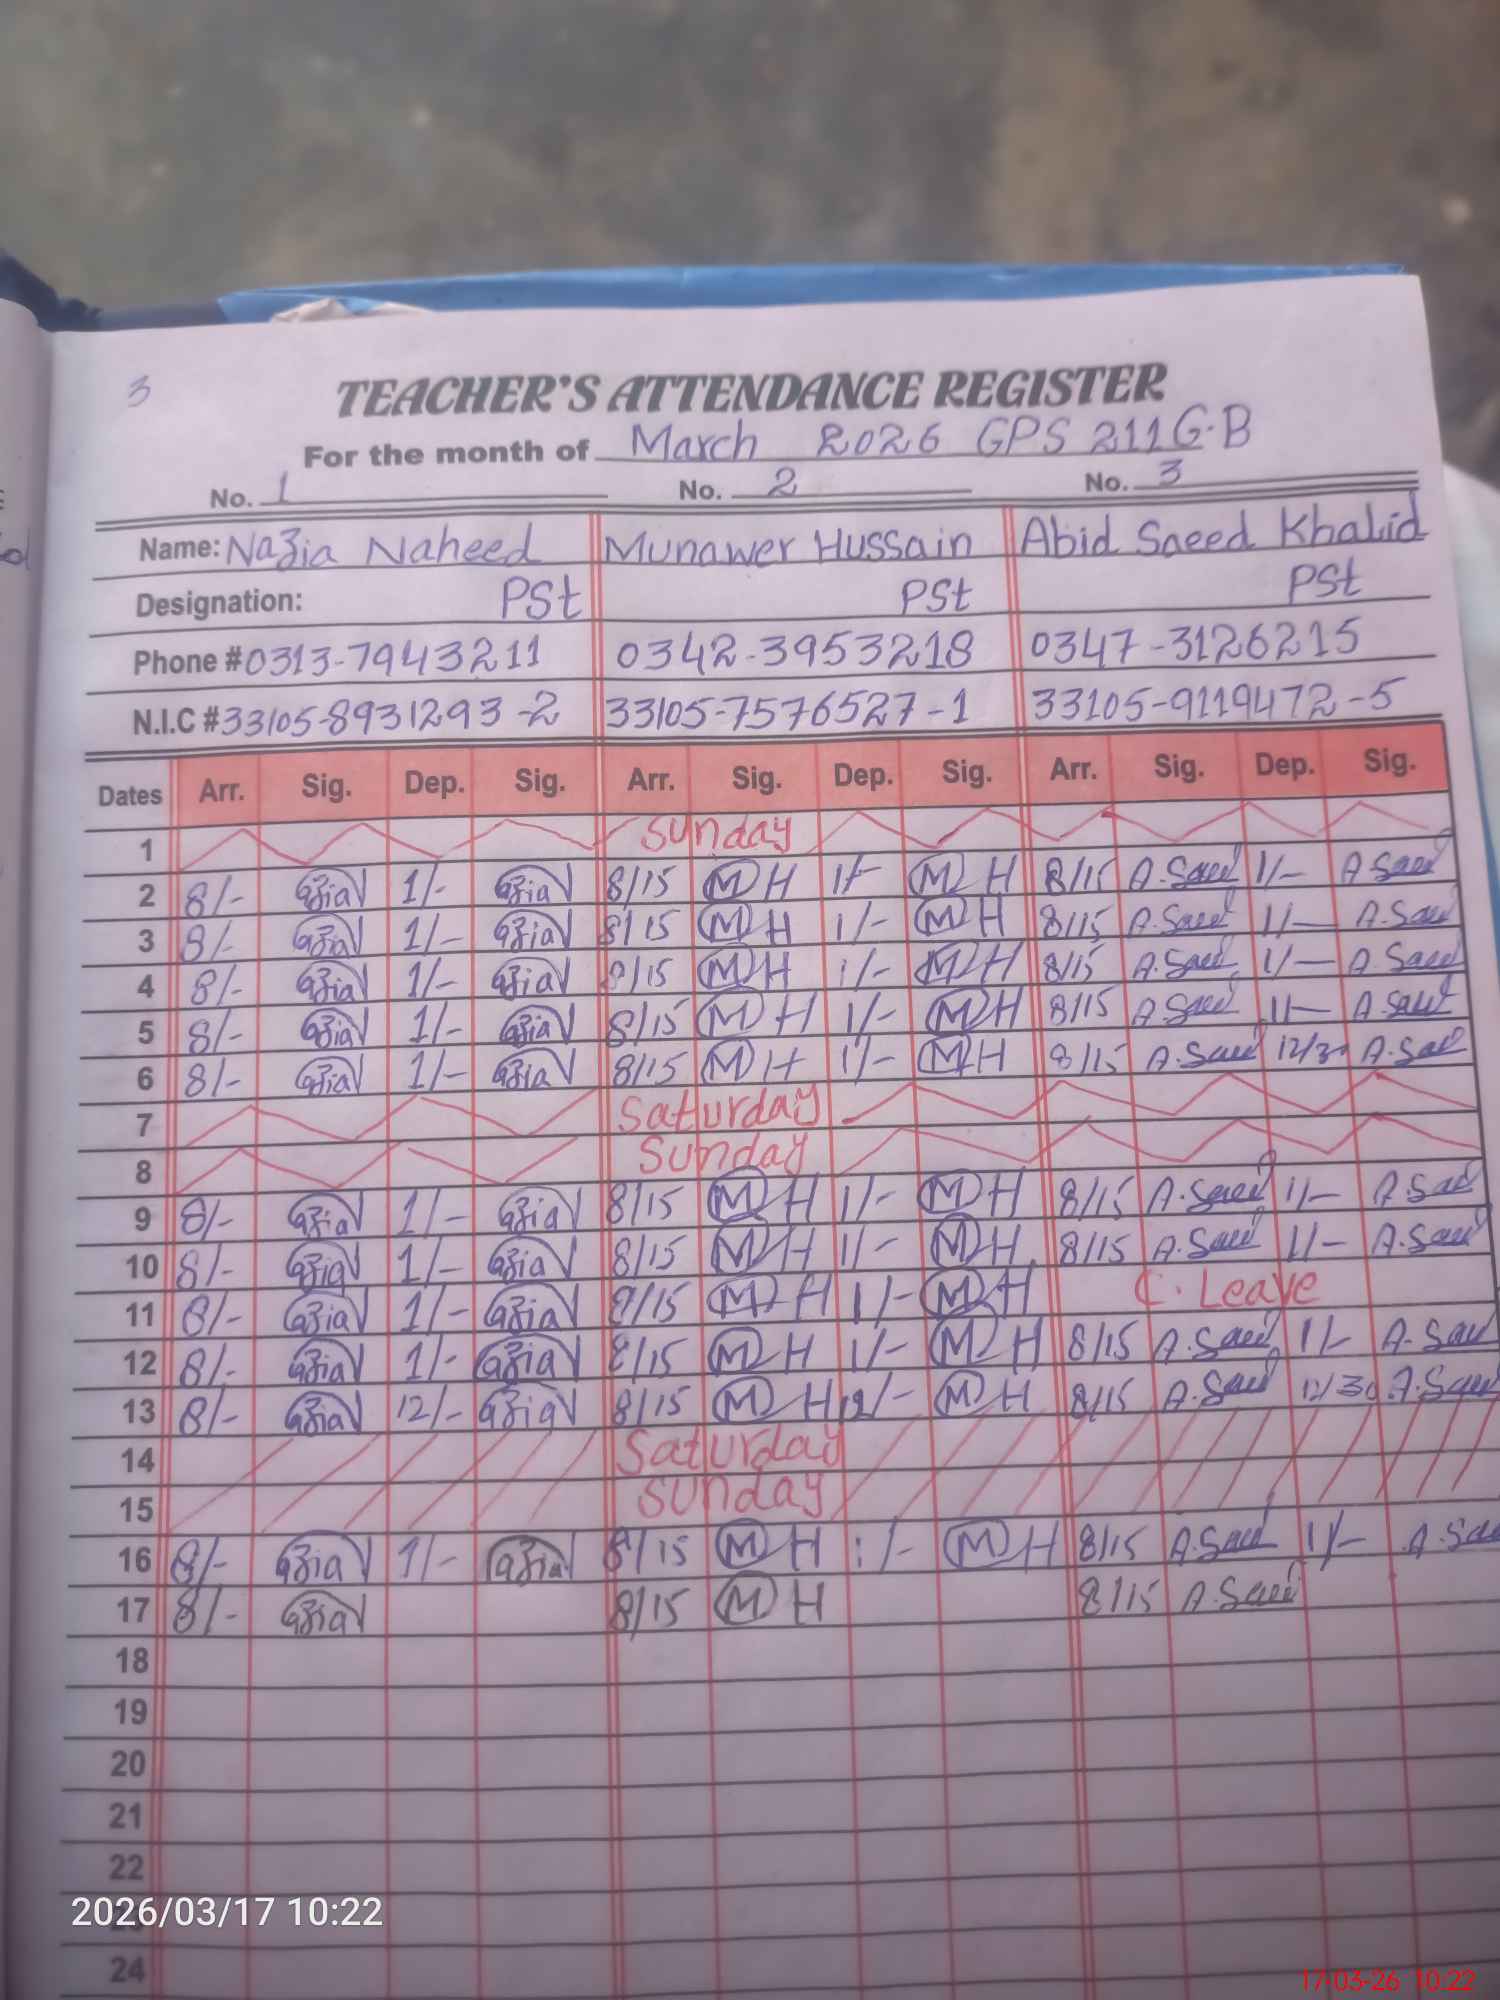 3
TEACHER'S ATTENDANCE REGISTER
For the month of March 2026 GPS 211 G.B
No. 1 No. 2 No. 3
Name: Nazia Naheed Munawer Hussain Abid Saeed Khalid
Designation: PSt PSt PSt
Phone # 0313-7943211 0342-3953218 0347-3126215
N.I.C # 33105-8931293-2 33105-7576527-1 33105-9119472-5
Dates Arr. Sig. Dep. Sig. Arr. Sig. Dep. Sig. Arr. Sig. Dep. Sig.
1 Sunday
2 8/- 1/- 8/15 M H 1/- M H 8/15 A.Saeed 1/- A Saeed
3 8/- 1/- 8/15 M H 1/- M H 8/15 A.Saeed 1/- A.Saeed
4 8/- 1/- 8/15 M H 1/- M H 8/15 A.Saeed 1/- A.Saeed
5 8/- 1/- 8/15 M H 1/- M H 8/15 A.Saeed 1/- A.Saeed
6 8/- 1/- 8/15 M H 1/- M H 8/15 A.Saeed 12/30 A.Saeed
7 Saturday
8 Sunday
9 8/- 1/- 8/15 M H 1/- M H 8/15 A.Saeed 1/- A.Saeed
10 8/- 1/- 8/15 M H 1/- M H 8/15 A.Saeed 1/- A.Saeed
11 8/- 1/- 8/15 M H 1/- M H C. Leave
12 8/- 1/- 8/15 M H 1/- M H 8/15 A.Saeed 1/- A.Saeed
13 8/- 12/- 8/15 M H 12/- M H 8/15 A.Saeed 12/30 A.Saeed
14 Saturday
15 Sunday
16 8/- 1/- 8/15 M H 1/- M H 8/15 A.Saeed 1/- A.Sae
17 8/- 8/15 M H 8/15 A.Saeed
18
19
20
21
22
23
24
2026/03/17 10:22
17-03-26 10:22